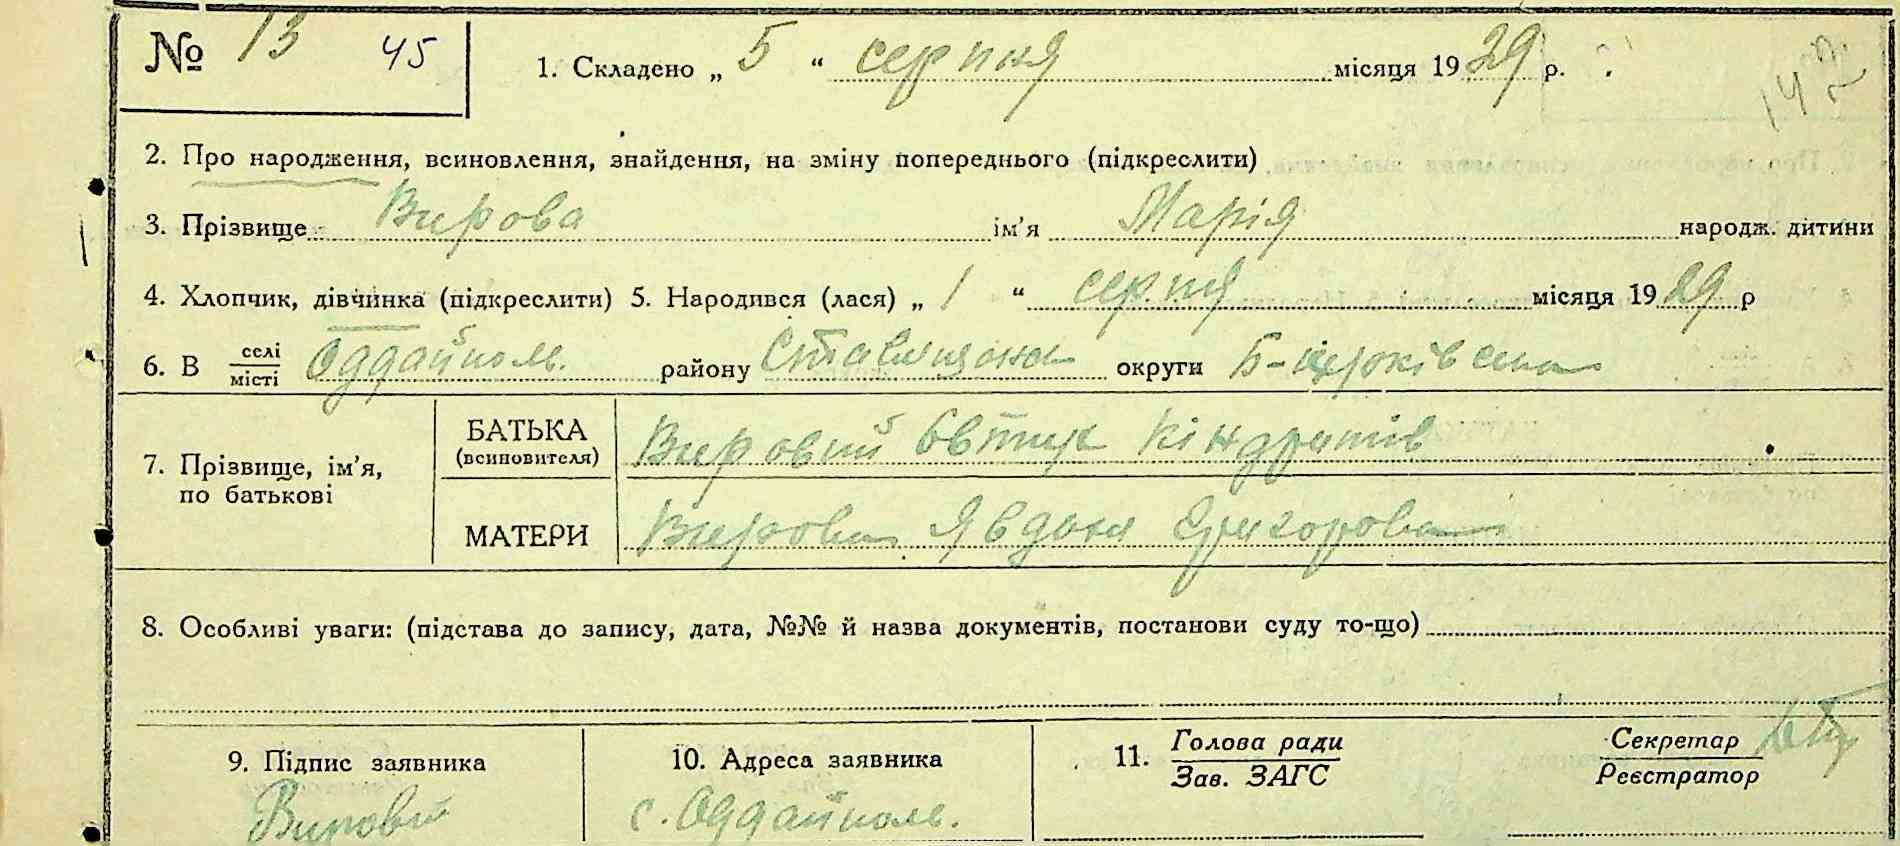 № 13 45
1. Складено „ 5 “ серпня місяця 19 29 р.
147
2. Про народження, всиновлення, знайдення, на зміну попереднього (підкреслити)
3. Прізвище Вирова ім'я Марія народж. дитини
4. Хлопчик, дівчинка (підкреслити) 5. Народився (лася) „ 1 “ серпня місяця 19 29 р
6. В селі/місті Оддайполь. району Ставищана округи Б-церківська
7. Прізвище, ім'я, по батькові
БАТЬКА (всиновителя) Вировий Євтух Кіндратів
МАТЕРИ Вирова Явдоха Григорова
8. Особливі уваги: (підстава до запису, дата, №№ й назва документів, постанови суду то-що)
9. Підпис заявника
Вировий
10. Адреса заявника
с. Оддайполь.
11. Голова ради
Зав. ЗАГС
Секретар
Реєстратор